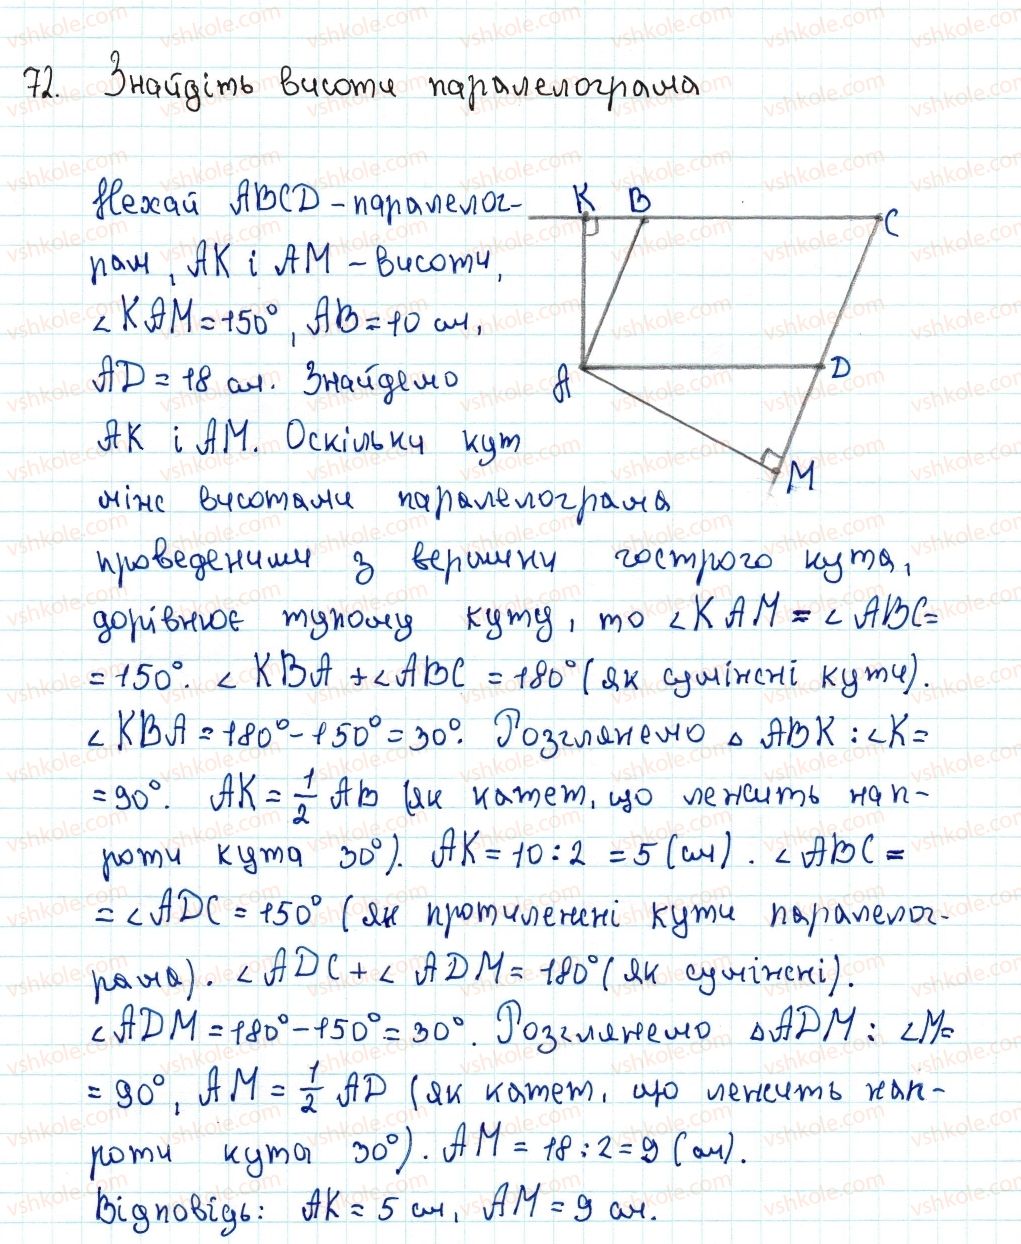 72. Знайдіть висоти паралелограма
Нехай ABCD – паралелог-
рам, AK і AM – висоти,
∠KAM = 150°, AB = 10 см,
AD = 18 см. Знайдемо
AK і AM. Оскільки кут
між висотами паралелограма
проведеними з вершини гострого кута,
дорівнює тупому куту, то ∠KAM = ∠ABC =
= 150°. ∠KBA + ∠ABC = 180° (як суміжні кути).
∠KBA = 180° – 150° = 30°. Розглянемо △ ABK : ∠K =
= 90°. AK = 1/2 AB (як катет, що лежить нап-
роти кута 30°). AK = 10 : 2 = 5 (см). ∠ABC =
= ∠ADC = 150° (як протилежні кути паралелог-
рама). ∠ADC + ∠ADM = 180° (як суміжні).
∠ADM = 180° – 150° = 30°. Розглянемо △ADM : ∠M =
= 90°, AM = 1/2 AD (як катет, що лежить нап-
роти кута 30°). AM = 18 : 2 = 9 (см).
Відповідь: AK = 5 см, AM = 9 см.
K B C
A D
M
vshkole.com